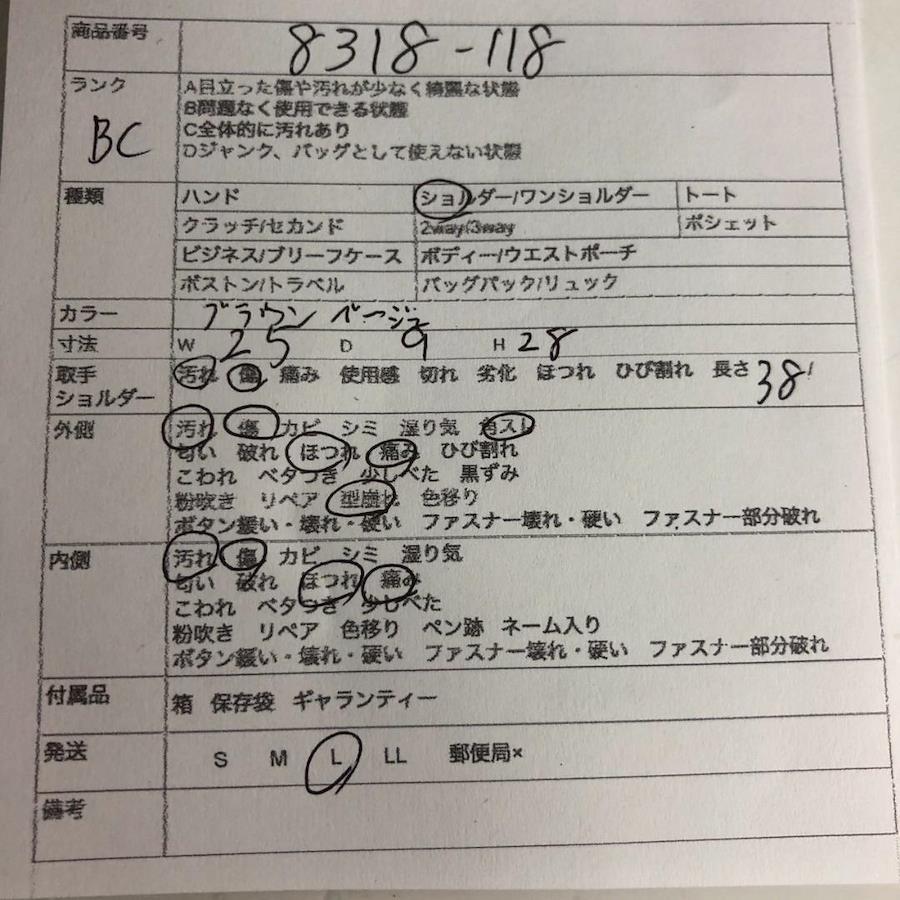 商品番号 8318-118
ランク BC A目立った傷や汚れが少なく綺麗な状態
B問題なく使用できる状態
C全体的に汚れあり
Dジャンク、バッグとして使えない状態
種類 ハンド ショルダー/ワンショルダー トート
クラッチ/セカンド 2way/3way ポシェット
ビジネス/ブリーフケース ボディー/ウエストポーチ
ボストン/トラベル バッグパック/リュック
カラー ブラウン ベージュ
寸法 W 25 D 9 H 28
取手 汚れ 傷 痛み 使用感 切れ 劣化 ほつれ ひび割れ 長さ 38
ショルダー
外側 汚れ 傷 カビ シミ 湿り気 角スレ
匂い 破れ ほつれ 痛み ひび割れ
こわれ ベタつき 少しべた 黒ずみ
粉吹き リペア 型崩れ 色移り
ボタン緩い・壊れ・硬い ファスナー壊れ・硬い ファスナー部分破れ
内側 汚れ 傷 カビ シミ 湿り気
匂い 破れ ほつれ 痛み
こわれ ベタつき 少しべた
粉吹き リペア 色移り ペン跡 ネーム入り
ボタン緩い・壊れ・硬い ファスナー壊れ・硬い ファスナー部分破れ
付属品 箱 保存袋 ギャランティー
発送 S M L LL 郵便局×
備考